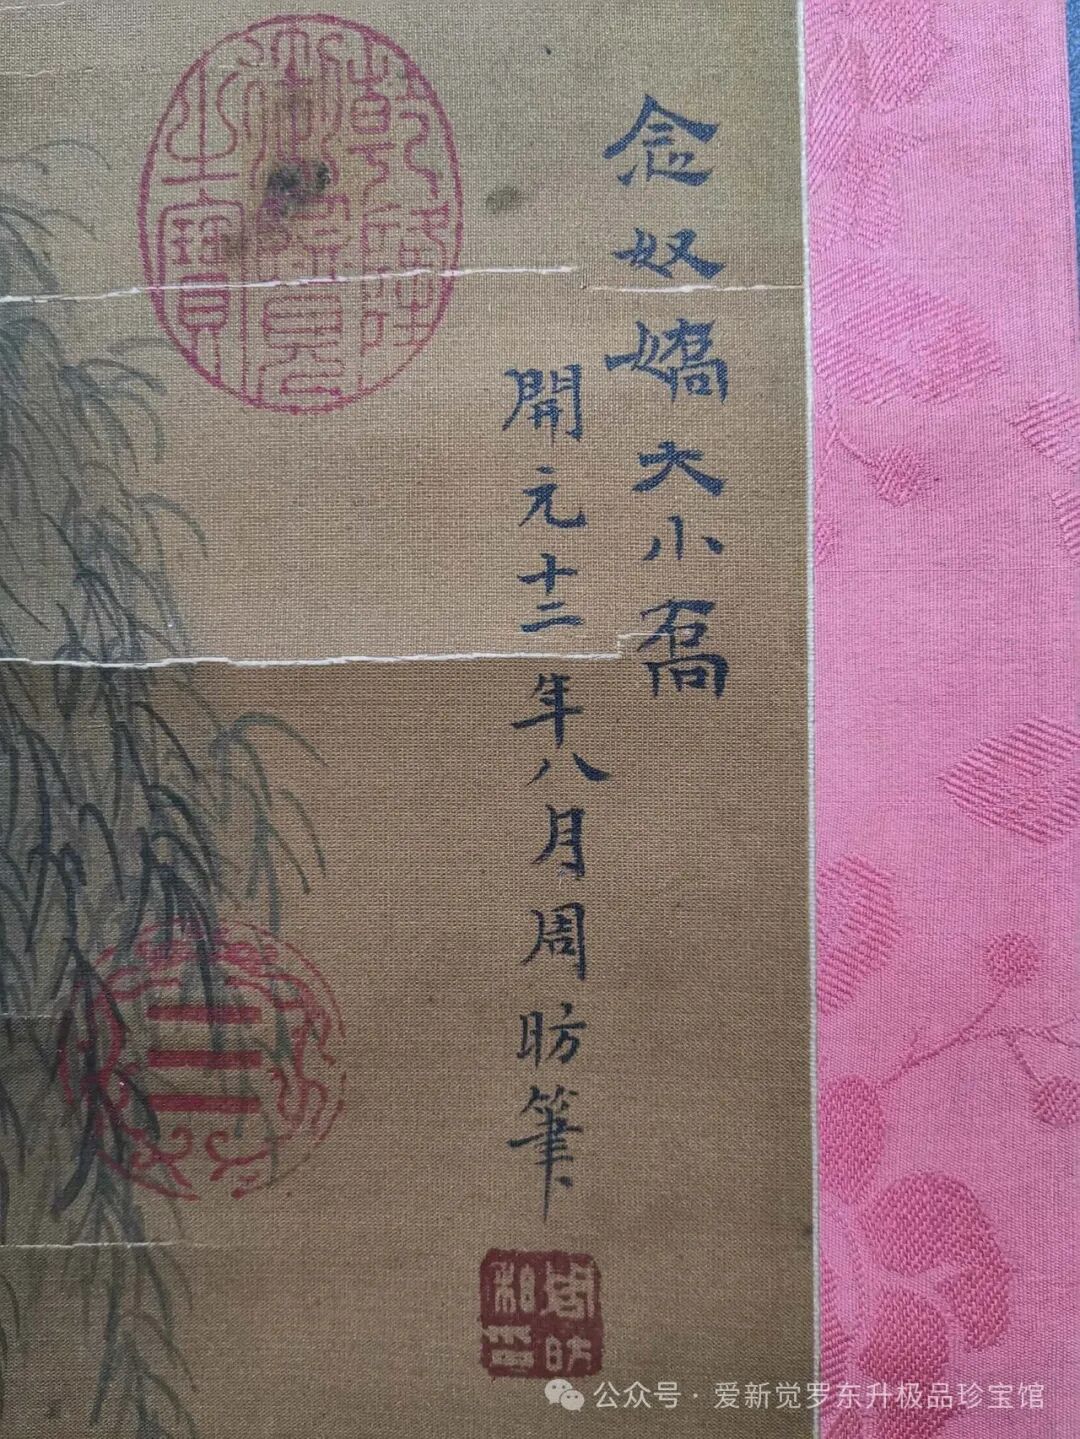 念奴嬌大小喬
開元十二年八月周昉筆
乾隆
御覽
之寶
周昉
公众号 · 爱新觉罗东升极品珍宝馆